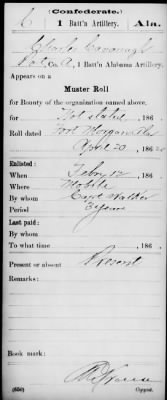 C (Confederate.) 
1 Batt'n Artillery. Ala.
Charles Cavanagh
Pvt, Co. A, 1 Batt'n Alabama Artillery.
Appears on a
Muster Roll
for Bounty of the organization named above,
for Not stated, 186 .
Roll dated Fort Morgan Ala
April 20, 1862.
Enlisted:
When Febry 12, 186 .
Where Mobile
By whom Capt Walker
Period 3 years
Last paid:
By whom
To what time , 186 .
Present or absent Present
Remarks:
Book mark:
(650) Copyist.